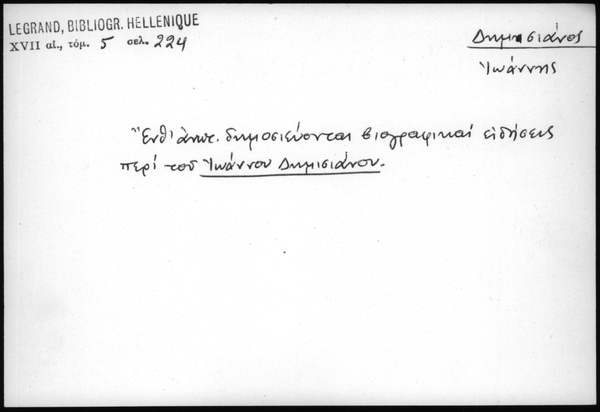 LEGRAND, BIBLIOGR. HELLENIQUE
XVII αἰ., τόμ. 5 σελ. 224
Δημισιάνος
Ἰωάννης
Ἔνθ' ἀνωτ. δημοσιεύονται βιογραφικαί εἰδήσεις
περί τοῦ Ἰωάννου Δημισιάνου.